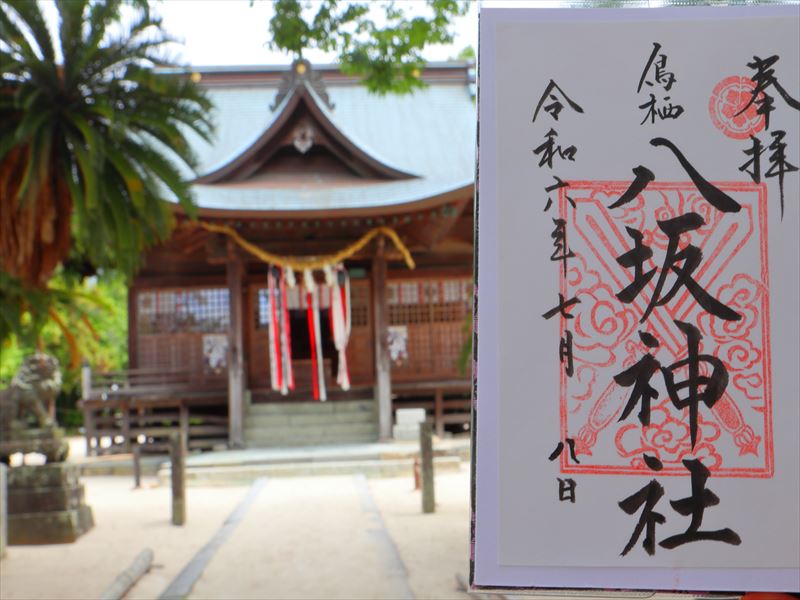 奉拝
鳥栖
八坂神社
令和六年七月八日